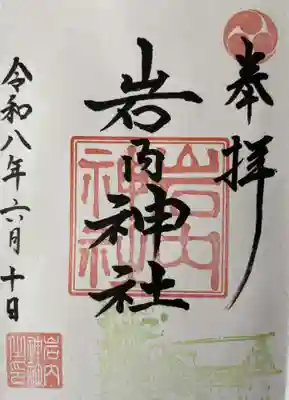 奉拝
岩内神社
岩内神社
令和八年六月十日
岩内
神社
之印